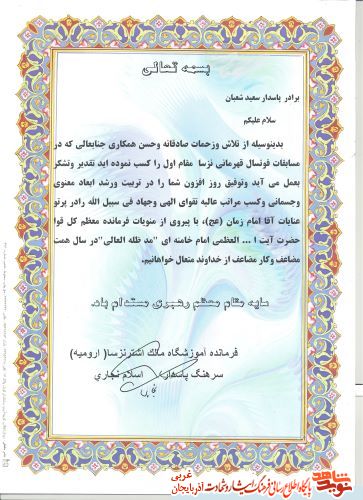 بسمه تعالی
برادر پاسدار سعید شعبان
سلام علیکم
بدینوسیله از تلاش وزحمات صادقانه وحسن همکاری جنابعالی که در
مسابقات فوتسال قهرمانی نزسا مقام اول را کسب نموده اید تقدیر وتشکر
بعمل می آید وتوفیق روز افزون شما را در تربیت ورشد ابعاد معنوی
وجسمانی وکسب مراتب عالیه تقوای الهی وجهاد فی سبیل الله رادر پرتو
عنایات آقا امام زمان (عج)، با پیروی از منویات فرمانده معظم کل قوا
حضرت آیت ا ... العظمی امام خامنه ای "مد ظله العالی"در سال همت
مضاعف وکار مضاعف از خداوند متعال خواهانیم.
سایه مقام معظم رهبری مستدام باد.
فرمانده آموزشگاه مالک اشترنزسا( ارومیه)
سرهنگ پاسدار اسلام نجاری
نوید شاهد
پایگاه اطلاع رسانی فرهنگ ایثار و شهادت آذربایجان غربی